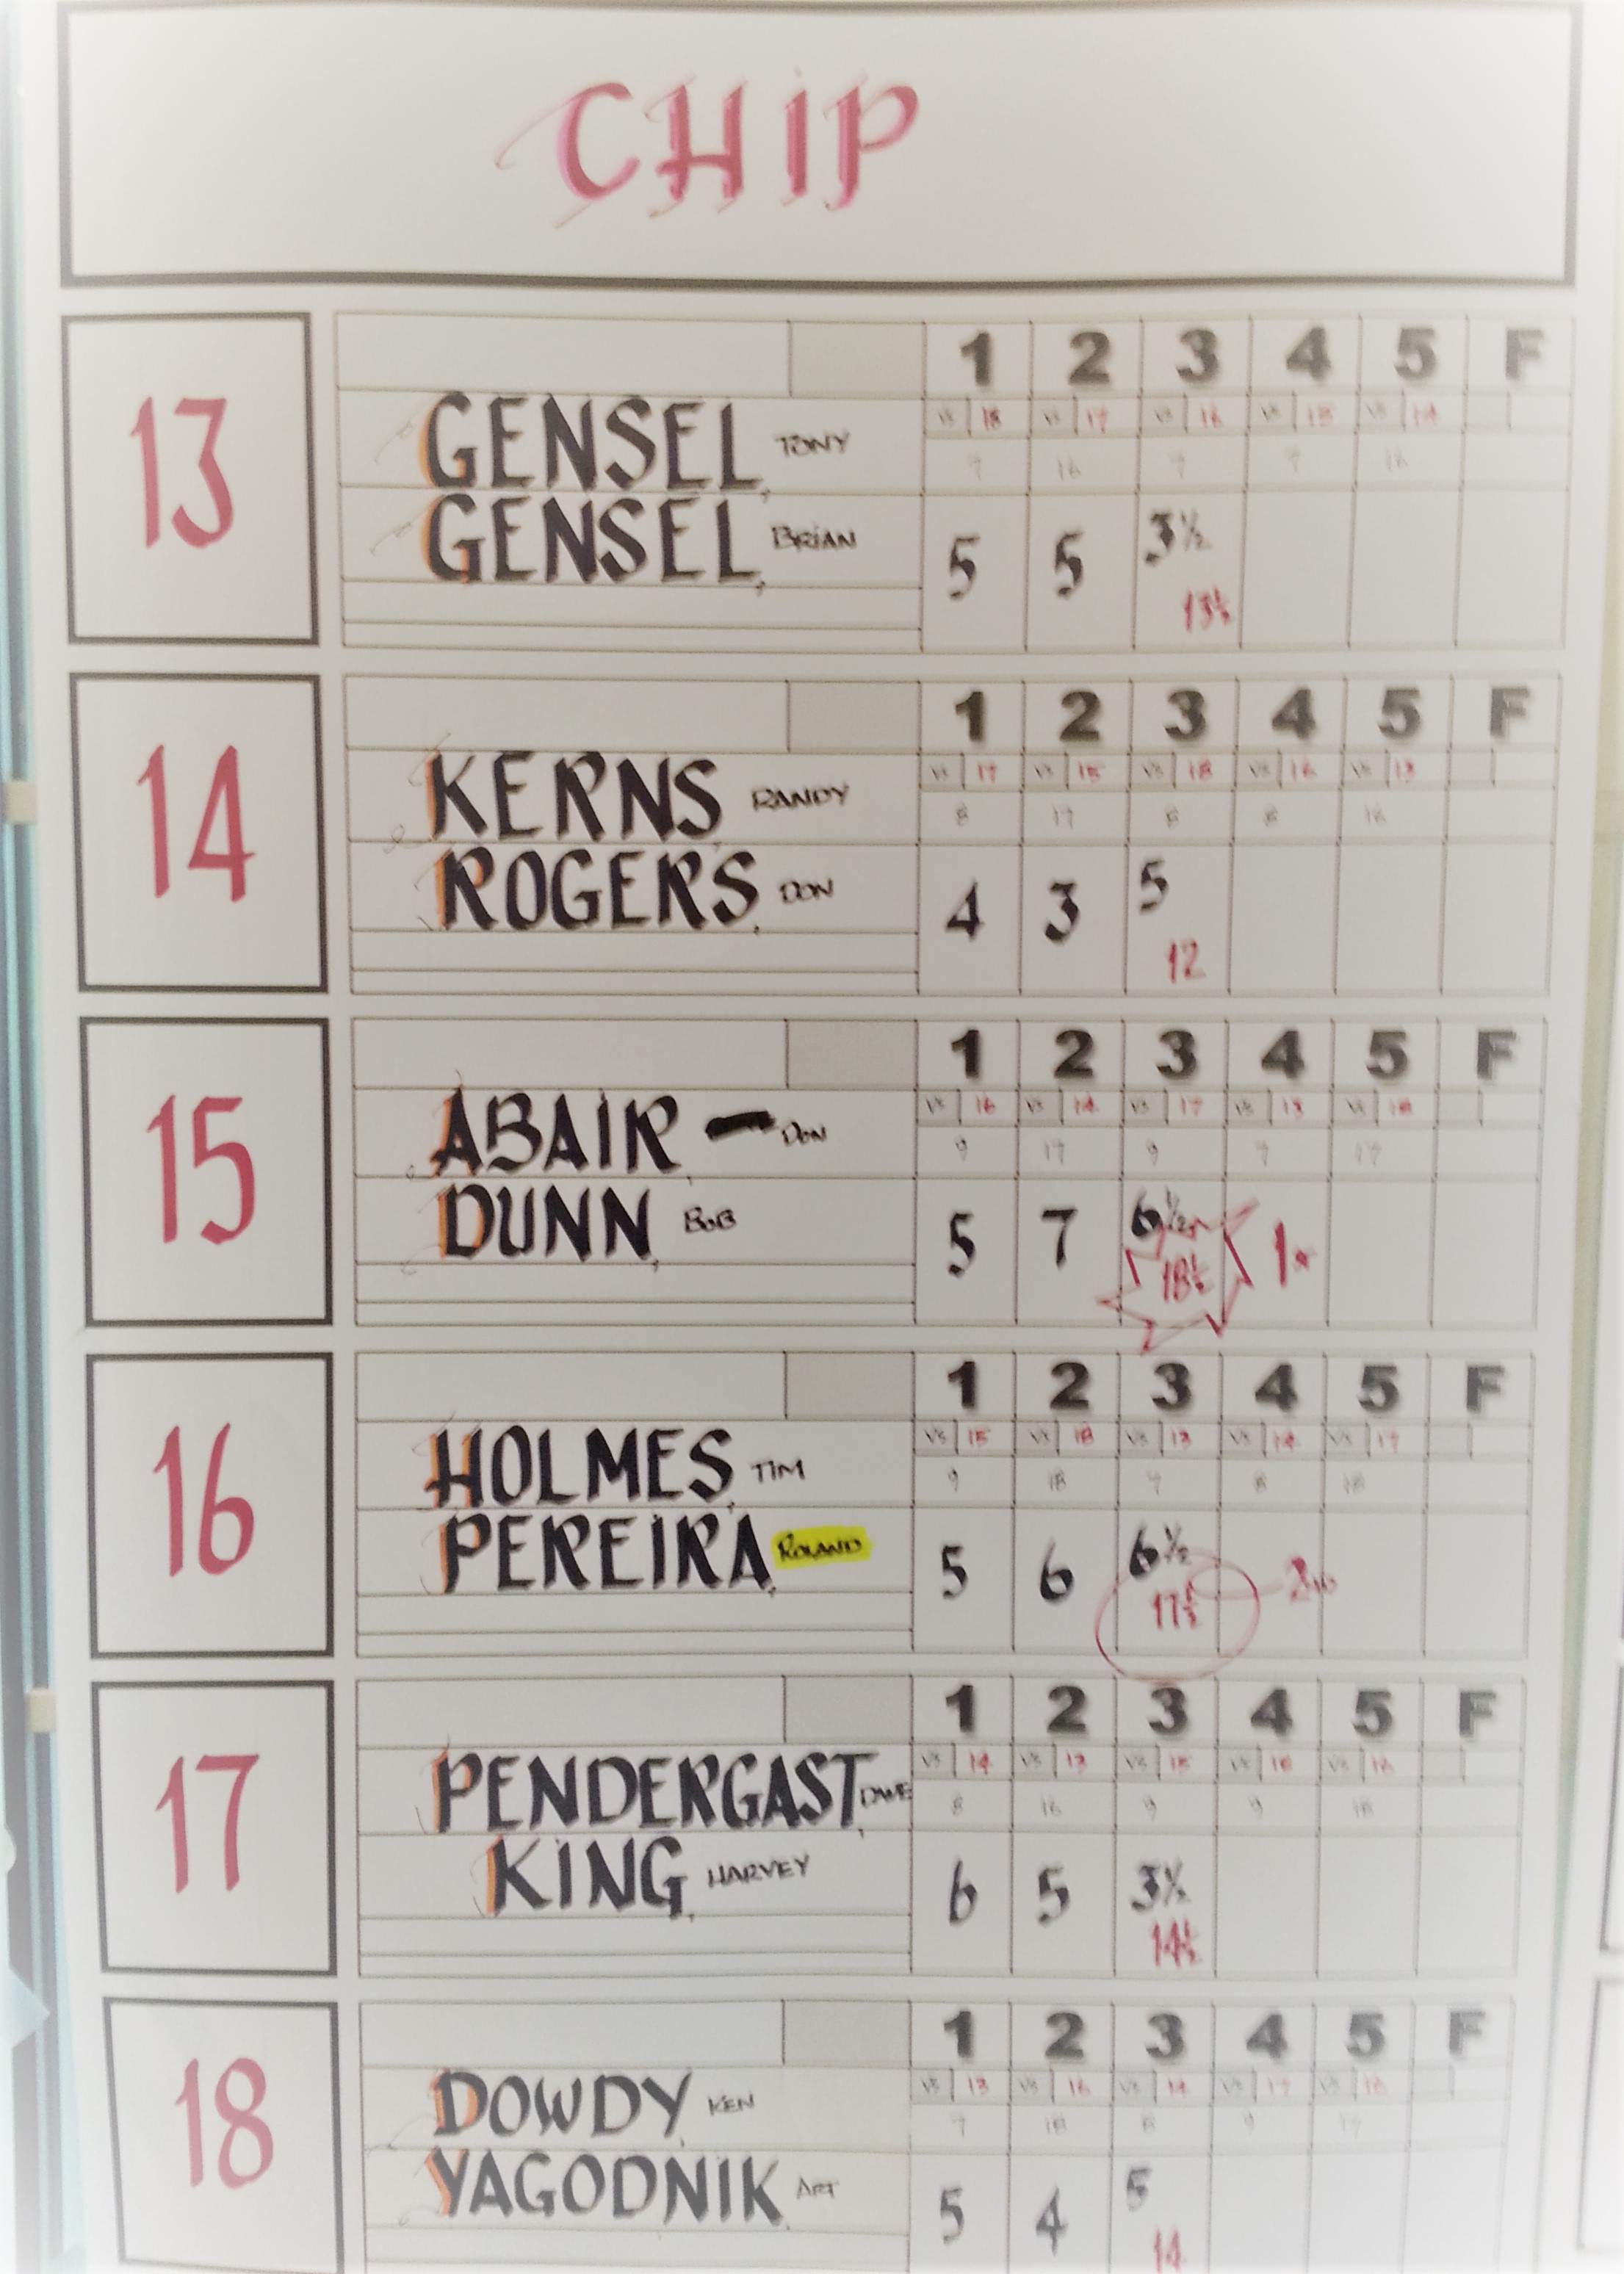 CHIP
13
1 2 3 4 5 F
GENSEL, TONY
vs 18 vs 17 vs 16 vs 15 vs 14
7 16 7 7 16
GENSEL, BRIAN
5 5 3½
13½
14
1 2 3 4 5 F
KERNS, RANDY
vs 17 vs 15 vs 18 vs 16 vs 13
8 17 8 8 16
ROGERS, DON
4 3 5
12
15
1 2 3 4 5 F
ABAIR - DON
vs 16 vs 14 vs 17 vs 13 vs 18
9 17 9 7 17
DUNN, BOB
5 7 6½
18½ 1st
16
1 2 3 4 5 F
HOLMES, TIM
vs 15 vs 18 vs 13 vs 14 vs 17
9 18 7 8 18
PEREIRA, ROLAND
5 6 6½
17½ 2ND
17
1 2 3 4 5 F
PENDERGAST, DAVE
vs 14 vs 13 vs 15 vs 18 vs 16
8 16 9 9 18
KING, HARVEY
6 5 3½
14½
18
1 2 3 4 5 F
DOWDY, KEN
vs 13 vs 16 vs 14 vs 17 vs
7 18 8 9 17
YAGODNIK, ART
5 4 5
14